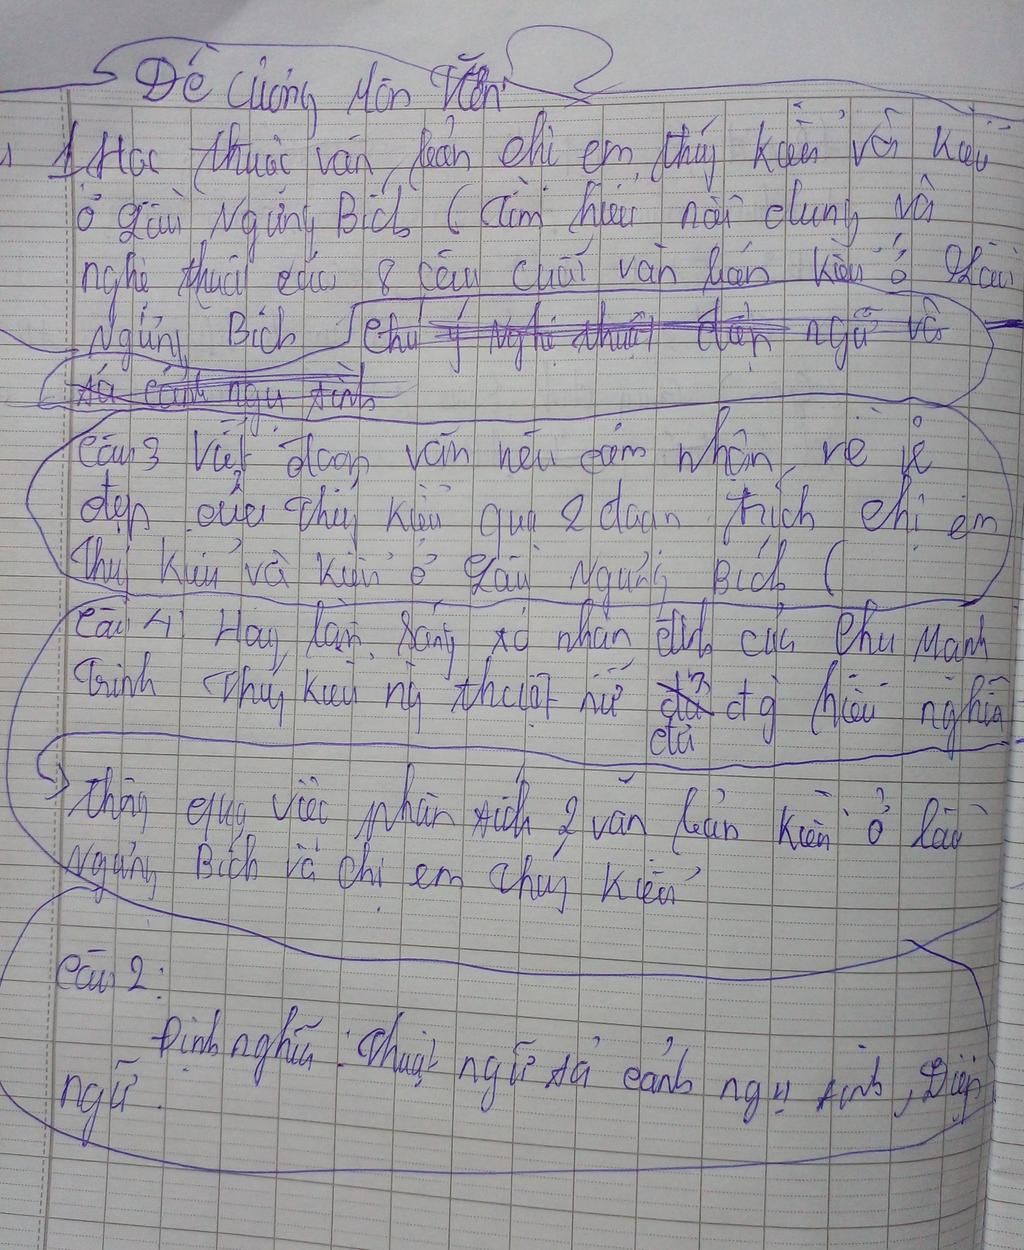 Đề Cương Môn Văn
1 Học thuộc văn bản chị em thúy kiều và kiều
ở lầu Ngưng Bích (Tìm hiểu nội dung và
nghệ thuật của 8 câu cuối văn bản kiều ở lầu
Ngưng Bích chú ý Nghệ thuật điệp ngữ và
tả cảnh ngụ tình
Câu 3 Viết đoạn văn nêu cảm nhận về
đẹp của thúy kiều qua 2 đoạn trích chị em
thúy kiều và kiều ở lầu Ngưng Bích (
Câu 4: Hãy làm sáng tỏ nhận định của Chu Mạnh
Trinh Thúy kiều ng thuở nữ hiếu nghĩa
đủ
thông qua việc phân tích 2 văn bản kiều ở lầu
Ngưng Bích và chị em thúy kiều
Câu 2:
Định nghĩa: Thuật ngữ tả cảnh ngụ tình, Điệp
ngữ.